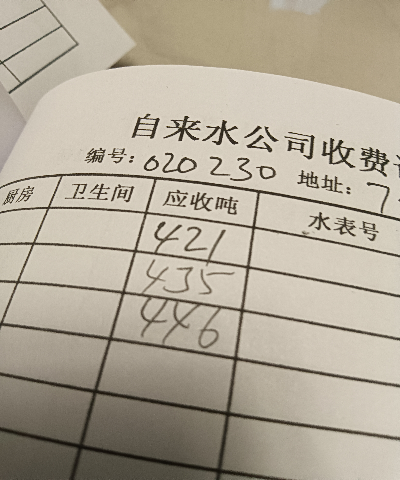 自来水公司收费
编号：020230 地址：7
厨房 卫生间 应收吨 水表号
421
435
446